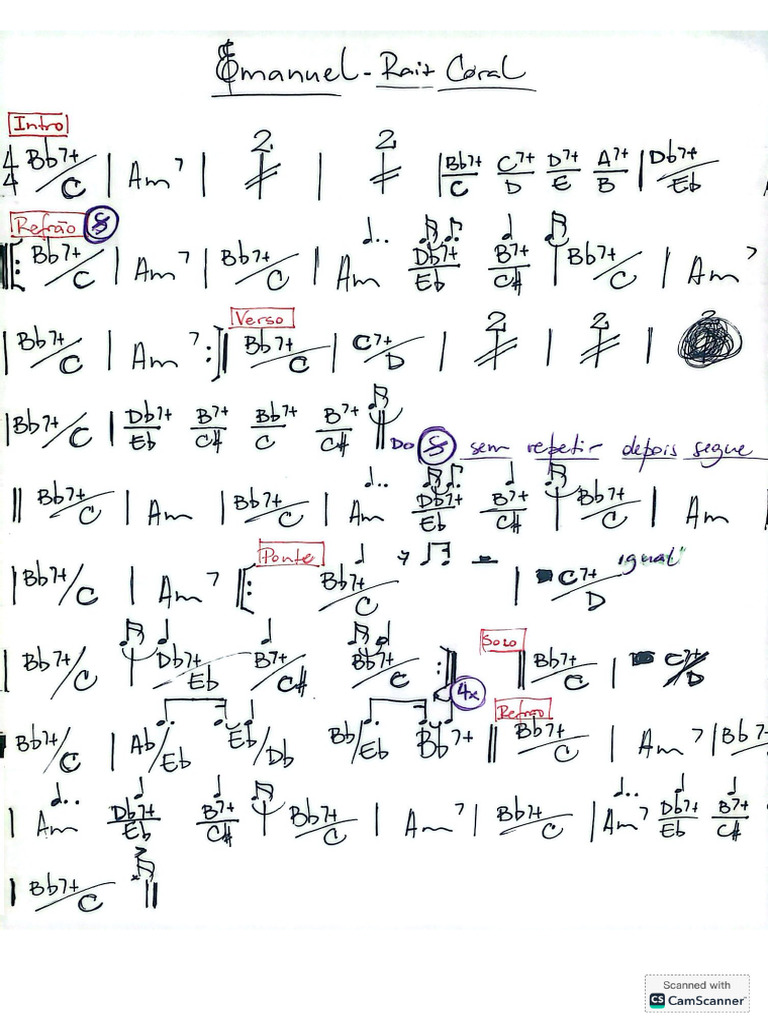 Emanuel - Raiz Coral
Intro
4/4 Bb7+/C | Am7 | 2 | 2 | Bb7+/C C7+/D D7+/E A7+/B | Db7+/Eb
Refrão S
Bb7+/C | Am7 | Bb7+/C | Am Db7+/Eb B7+/C# | Bb7+/C | Am7
Verso
| Bb7+/C | Am7 :|| Bb7+/C | C7+/D | 2 | 2 |
| Bb7+/C | Db7+/Eb B7+/C# Bb7+/C B7+/C# || Do S sem repetir depois segue
|| Bb7+/C | Am | Bb7+/C | Am Db7+/Eb B7+/C# | Bb7+/C | Am |
Ponte
| Bb7+/C | Am7 ||: Bb7+/C | C7+/D igual"
Solo
| Bb7+/C | Db7+/Eb B7+/C# Bb7+/C :|| 4x || Bb7+/C | C7+/D
Refrão
Bb7+/C | Ab/Eb Eb/Db Bb/Eb Bb7+ || Bb7+/C | Am7 | Bb7+
| Am Db7+/Eb B7+/C# | Bb7+/C | Am7 | Bb7+/C | Am7 Db7+/Eb B7+/C#
| Bb7+/C ||
Scanned with
CS CamScanner